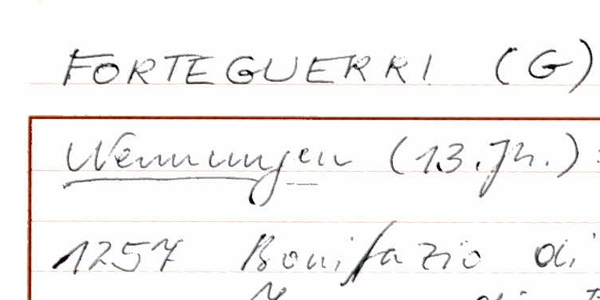 FORTEGUERRI (G)
Nennungen (13. Jh.):
1257 Bonifazio di